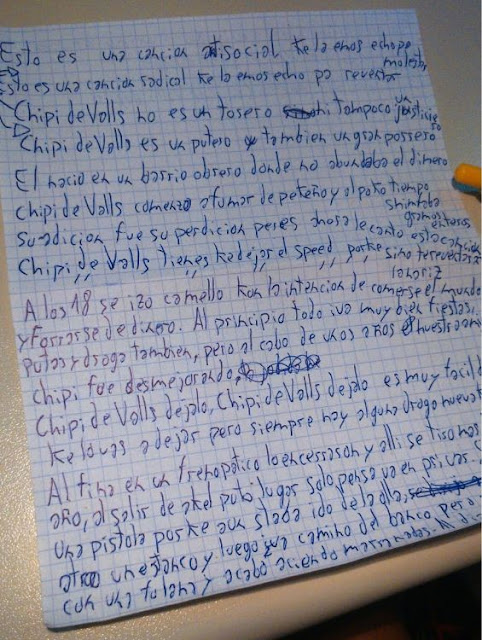 Esto es una cancion antisocial ke la emos echo pa molestar
Esto es una cancion radical ke la emos echo pa reventar
Chipi de Valls no es un tosero ni tampoco un justiciero
Chipi de Valls es un putero y tambien un gran possero
El nacio en un barrio obrero donde no abundaba el dinero
Chipi de Valls comenzo a fumar de peteño y al poko tiempo shimtaba gramos enteros
su adicion fue su perdicion por eso le canto esta cancion
Chipi de Valls tienes ke dejar el speed porke sino te reventara la nariz
A los 18 se izo camello kon la intencion de comerse el mundo
y forrarse de dinero. Al principio todo iva muy bien fiestas,
putas y droga tambien, pero al cabo de unos años nuestro
Chipi fue desmejorando,
Chipi de Valls dejalo, Chipi de Valls dejalo es muy facil
ke lo vas a dejar pero siempre hay alguna droga nueva
Al fina en un frenopatico lo encerraron y alli se tiro
año, al salir de akel puto lugar solo pensava en privar
una pistola porke aun siada ido de la olla,
atrco un estanco y luego iva camino del banco pero
con una fulana y acabo aciendo marranadas